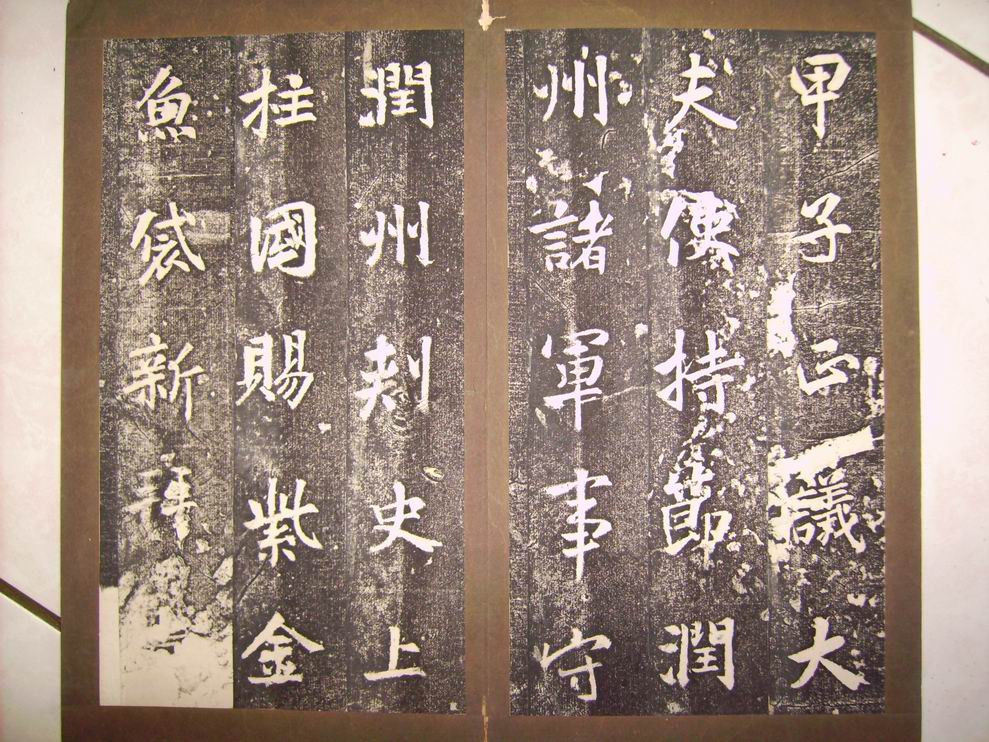 甲子正議大
夫使持節潤
州諸軍事守
潤州刺史上
柱國賜紫金
魚袋新拜